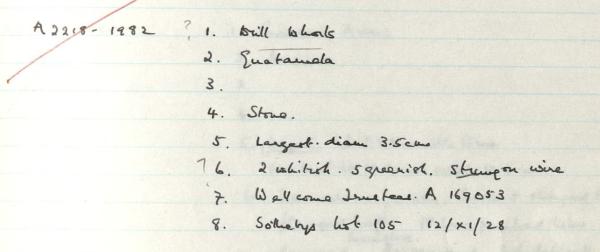 A 2218-1982 ? 1. Drill Whorls
2. Guatamala
3.
4. Stone.
5. Largest. diam 3.5cms
? 6. 2 whitish. 5 greenish. Strung on wire
7. Wellcome Trustees. A 169053
8. Sothebys Lot 105 12/XI/28